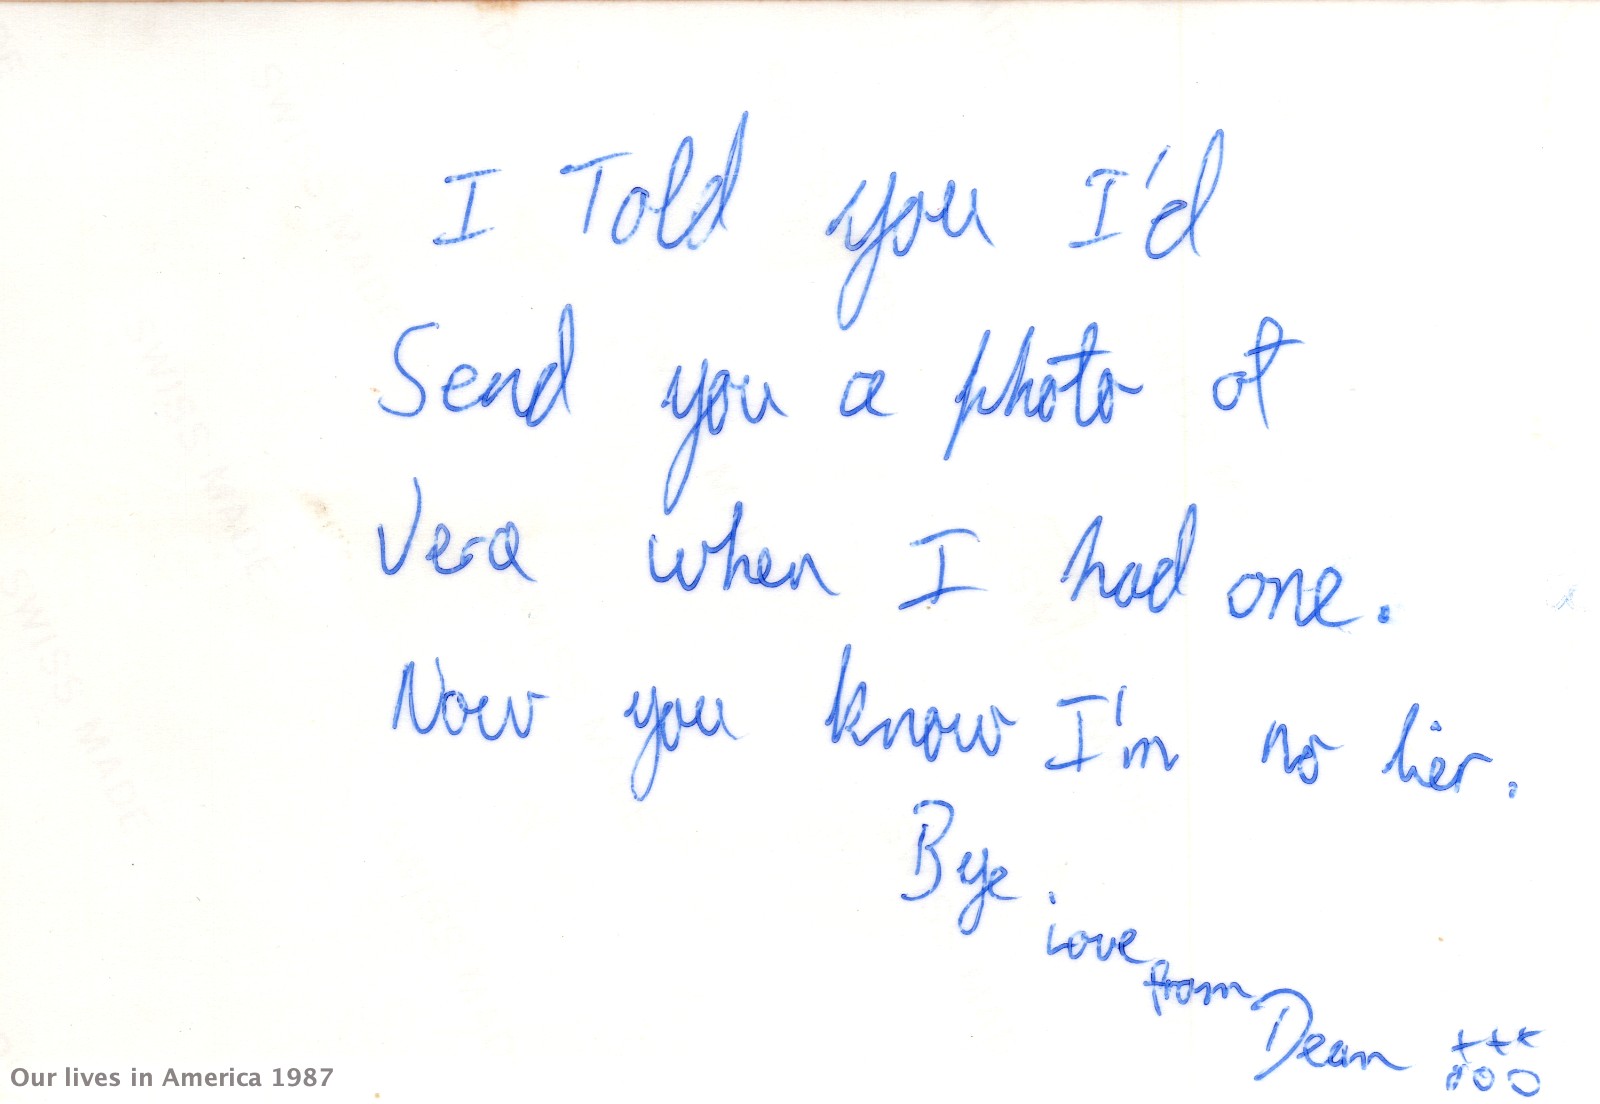 I Told you I'd
Send you a photo of
Vera when I had one.
Now you know I'm no lier.
Bye
love
from
Dean +++
ooo
SWISS MADE
SWISS MADE
Our lives in America 1987